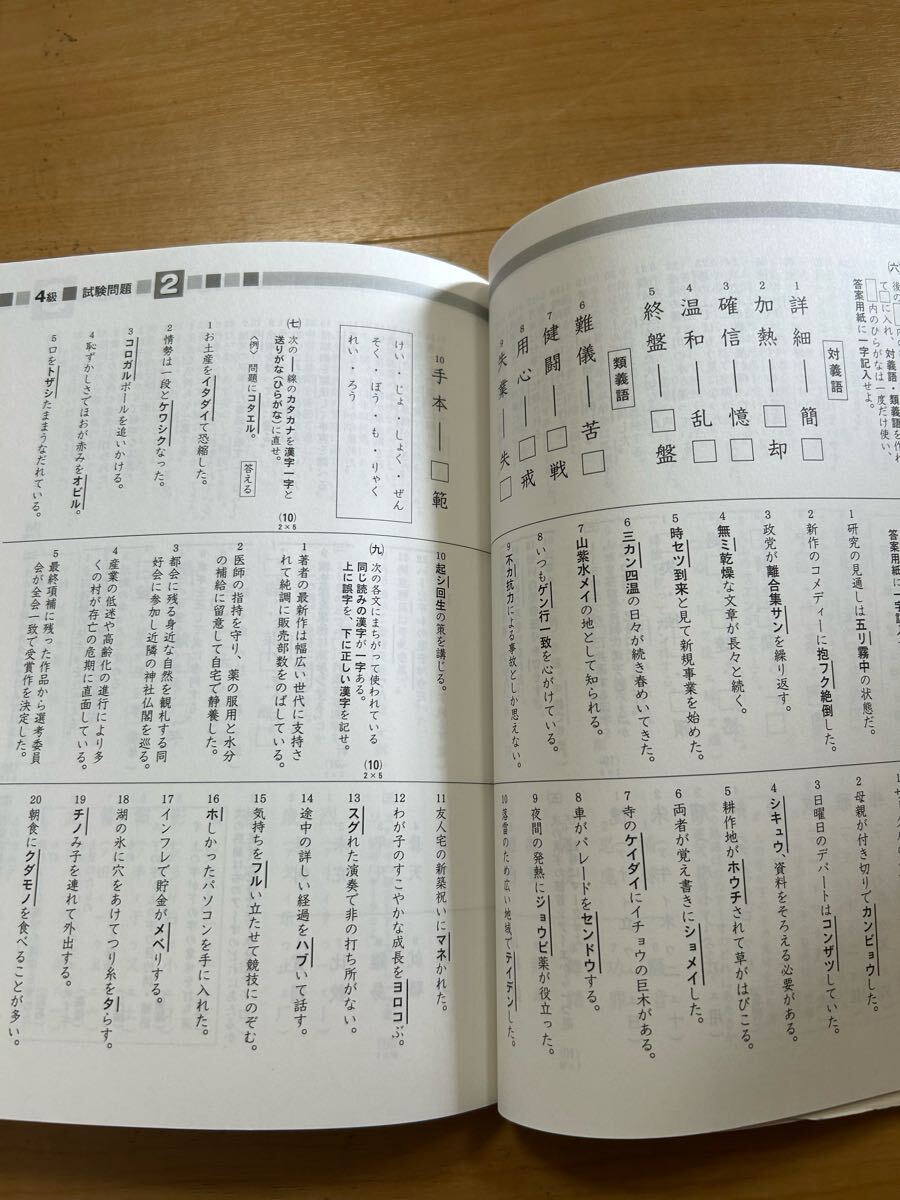 4級 試験問題 2
(六)
後の
て□に入れ、対義語・類義語を作れ
□内のひらがなは一度だけ使い、
答案用紙に一字記入せよ。
対義語
1 詳細―簡□
2 加熱―□却
3 確信―□憶
4 温和―乱□
5 終盤―□盤
類義語
6 難儀―苦□
7 健闘―□戦
8 用心―□戒
9 失業―失□
10 手本―□範
けい・じょ・しょく・ぜん
そく・ぼう・も・りゃく
れい・ろう
(七) 次の――線のカタカナを漢字一字と
送りがな(ひらがな)に直せ。
(10)
2×5
〈例〉 問題にコタエル。 答える
1 お土産をイタダイて恐縮した。
2 情勢は一段とケワシクなった。
3 コロガルボールを追いかける。
4 恥ずかしさでほおが赤みをオビル。
5 口をトザシたままうなだれている。
答案用紙に一字
1 研究の見通しは五リ霧中の状態だ。
2 新作のコメディーに抱フク絶倒した。
3 政党が離合集サンを繰り返す。
4 無ミ乾燥な文章が長々と続く。
5 時セツ到来と見て新規事業を始めた。
6 三カン四温の日々が続き春めいてきた。
7 山紫水メイの地として知られる。
8 いつもゲン行一致を心がけている。
9 不カ抗力による事故としか思えない。
10 起シ回生の策を講じる。
(九) 次の各文にまちがって使われている
同じ読みの漢字が一字ある。
上に誤字を、下に正しい漢字を記せ。
(10)
2×5
1 著者の最新作は幅広い世代に支持さ
れて純調に販売部数をのばしている。
2 医師の指持を守り、薬の服用と水分
の補給に留意して自宅で静養した。
3 都会に残る身近な自然を観札する同
好会に参加し近隣の神社仏閣を巡る。
4 産業の低迷や高齢化の進行により多
くの村が存亡の危期に直面している。
5 最終項補に残った作品から選考委員
会が全会一致で受賞作を決定した。
2 母親が付き切りでカンビョウした。
3 日曜日のデパートはコンザツしていた。
4 シキュウ、資料をそろえる必要がある。
5 耕作地がホウチされて草がはびこる。
6 両者が覚え書きにショメイした。
7 寺のケイダイにイチョウの巨木がある。
8 車がパレードをセンドウする。
9 夜間の発熱にジョウビ薬が役立った。
10 落雷のため広い地域でテイデンした。
11 友人宅の新築祝いにマネかれた。
12 わが子のすこやかな成長をヨロコぶ。
13 スグれた演奏で非の打ち所がない。
14 途中の詳しい経過をハブいて話す。
15 気持ちをフルい立たせて競技にのぞむ。
16 ホしかったパソコンを手に入れた。
17 インフレで貯金がメベりする。
18 湖の氷に穴をあけてつり糸をタらす。
19 チノみ子を連れて外出する。
20 朝食にクダモノを食べることが多い。